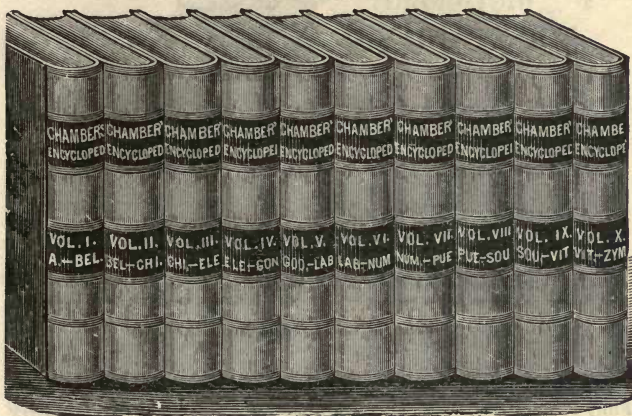 CHAMBER'
ENCYCLOPED
VOL. I.
A.—BEL.
CHAMBER'
ENCYCLOPED
VOL. II.
BEL.—CHI.
CHAMBER'
ENCYCLOPED
VOL. III.
CHI.—ELE
CHAMBER'
ENCYCLOPED
VOL. IV.
ELE.—GON
CHAMBER'
ENCYCLOPED
VOL. V.
GOO.—LAB
CHAMBER'
ENCYCLOPEI
VOL. VI.
LAB.—NUM
CHAMBER'
ENCYCLOPEI
VOL. VII.
NUM.—PUE
CHAMBER'
ENCYCLOPEI
VOL. VIII
PUE.—SOU
CHAMBER'
ENCYCLOPED
VOL. IX.
SOU.—VIT
CHAMBE
ENCYCLOPE'
VOL. X.
VIT.—ZYM